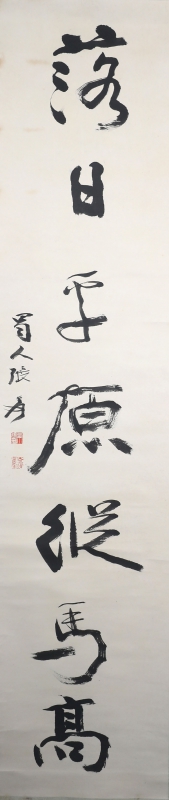 落日平原縱馬高
蜀人張爰